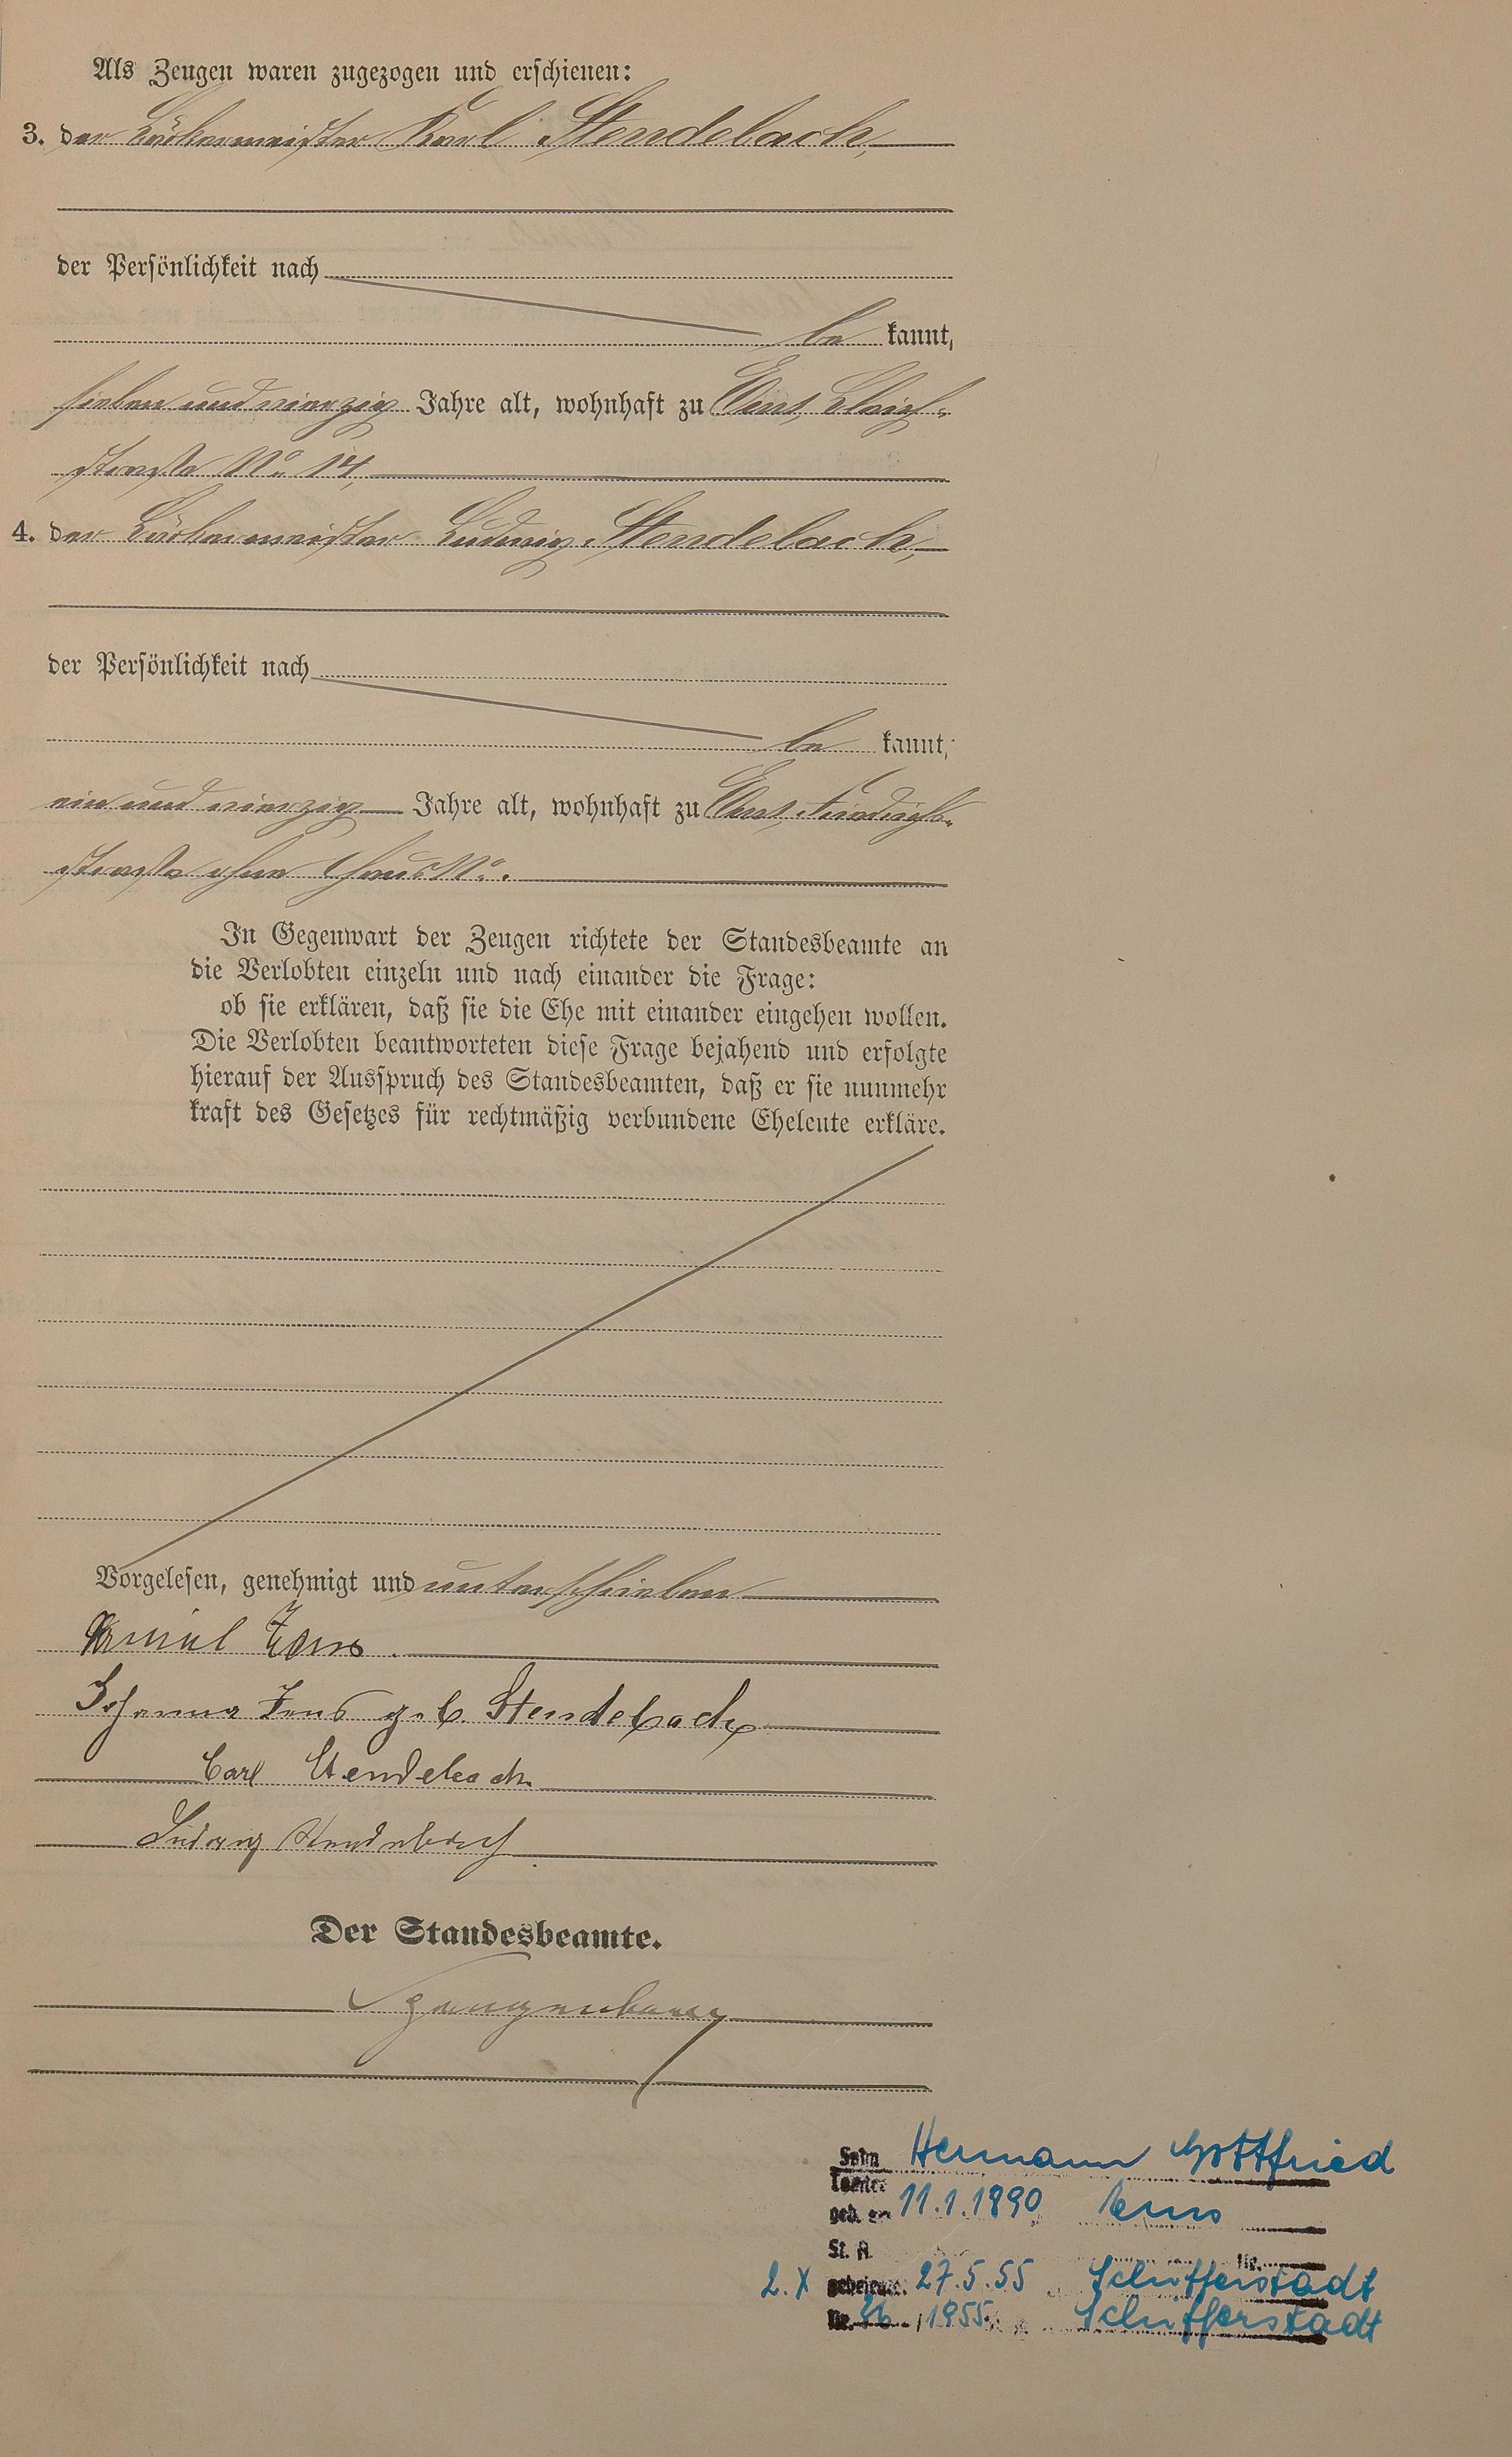 Als Zeugen waren zugezogen und erschienen:
3. der Bäckermeister Karl Stendebach,
der Persönlichkeit nach
be kannt,
sieben und vierzig Jahre alt, wohnhaft zu Ems, Bleich-
straße No. 14,
4. der Bäckermeister Ludwig Stendebach,
der Persönlichkeit nach
be kannt,
ein und vierzig Jahre alt, wohnhaft zu Ems, Friedrichs-
straße ohne Haus No.
In Gegenwart der Zeugen richtete der Standesbeamte an
die Verlobten einzeln und nach einander die Frage:
ob sie erklären, daß sie die Ehe mit einander eingehen wollen.
Die Verlobten beantworteten diese Frage bejahend und erfolgte
hierauf der Ausspruch des Standesbeamten, daß er sie nunmehr
kraft des Gesetzes für rechtmäßig verbundene Eheleute erkläre.
Vorgelesen, genehmigt und unterschrieben
Johanna geb. Stendebach
Carl Stendebach
Ludwig Stendebach
Der Standesbeamte.
Spangenberg
Sohn Hermann Gottfried
Tochter
geb. am 11.1.1890 Ems
St. A. Nr.
2. X geheiratet 27.5.55 Schifferstadt
Nr. 36 / 1955 Schifferstadt